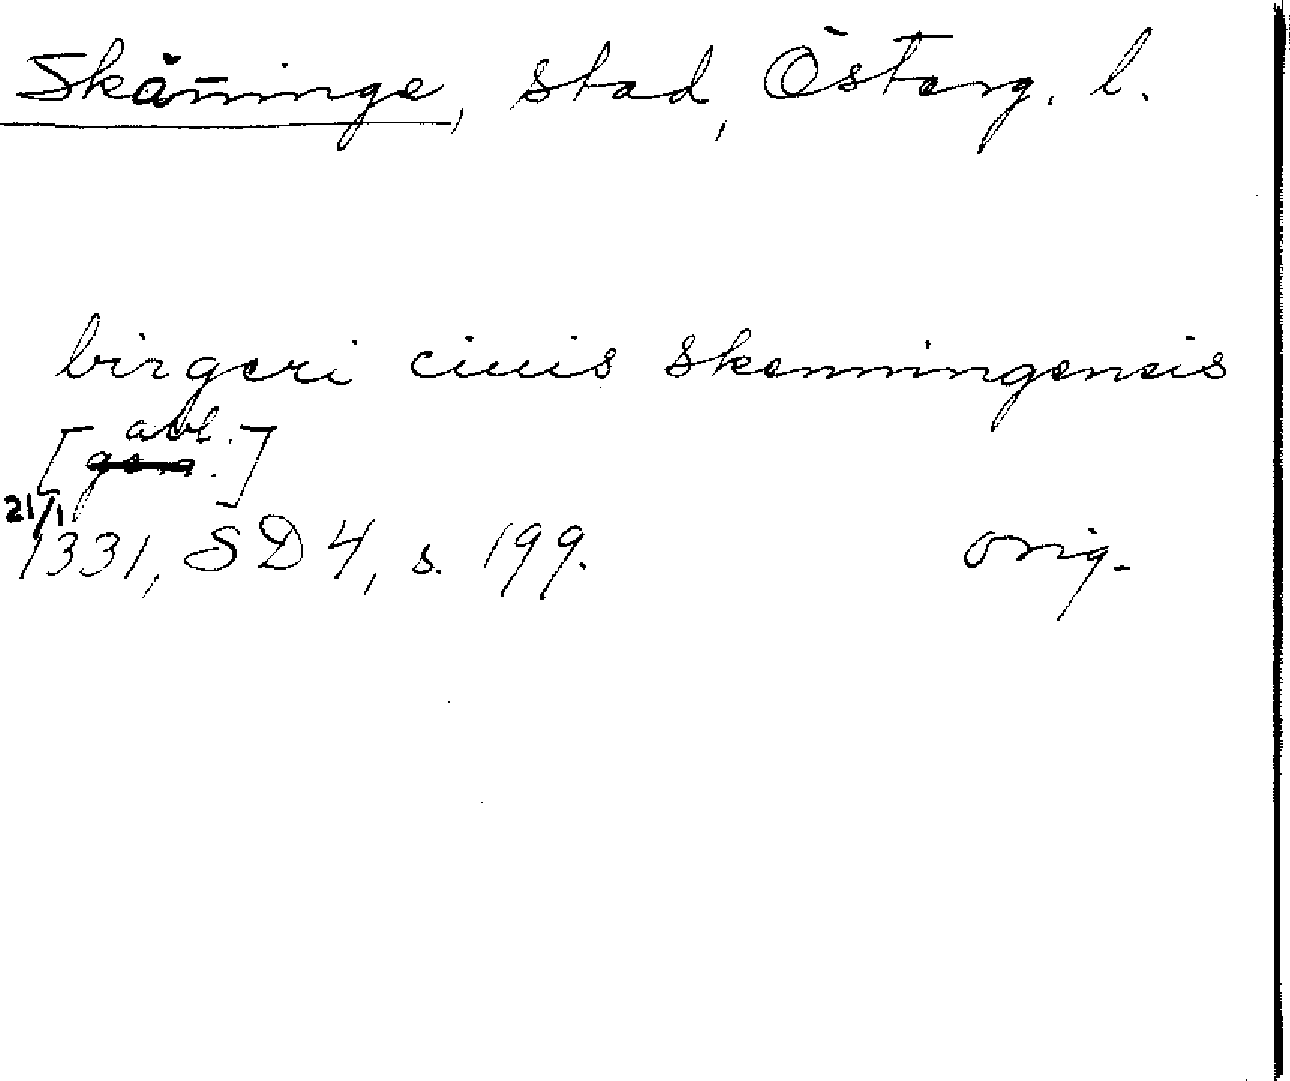 Skänninge, stad, Österg. l.
birgeri ciuis skenningensis
[abl.]
21/1 1331, SD 4, s. 199. orig.